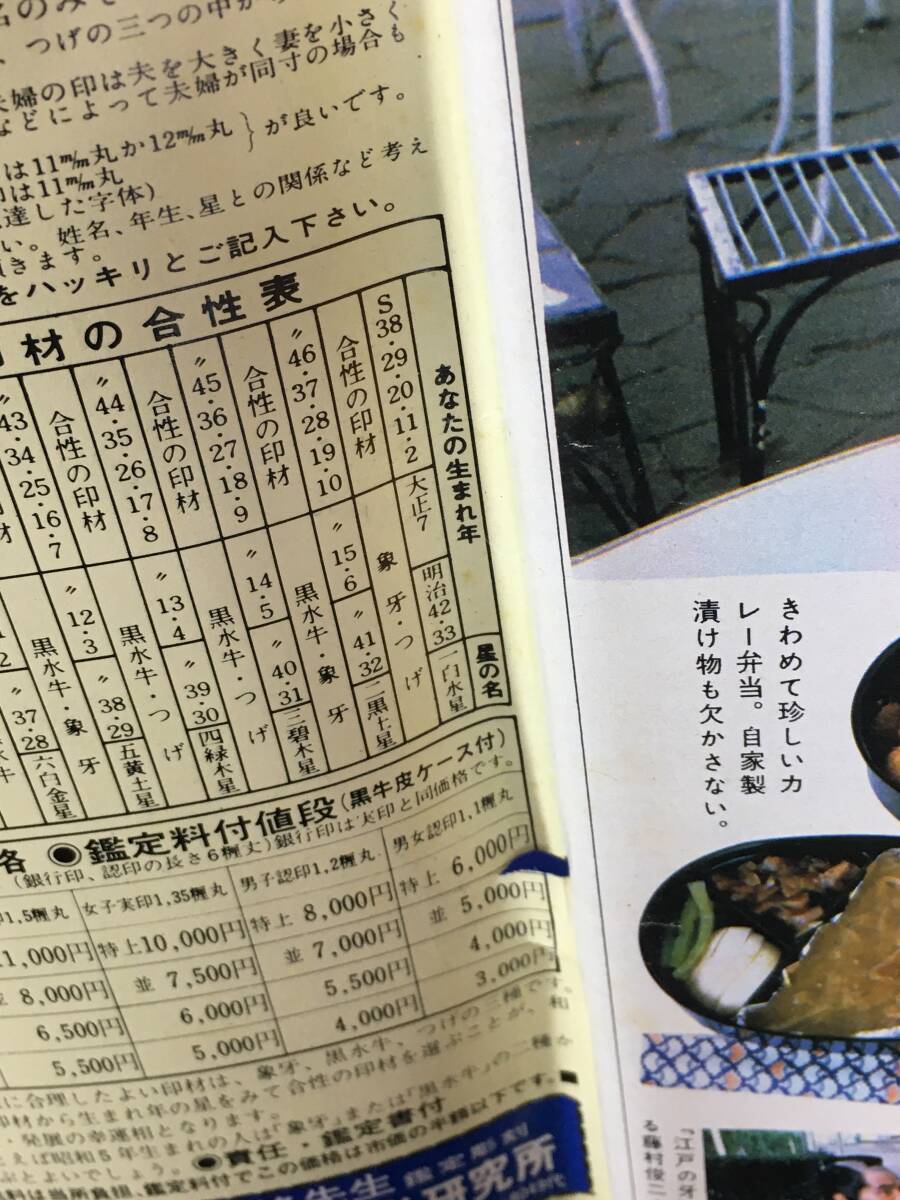 つげの三つの中か
夫婦の印は夫を大きく妻を小さく
などによって夫婦が同寸の場合も
は11m/m丸か12m/m丸
は11m/m丸
が良いです。
達した字体)
い。姓名、年生、星との関係など考え
きます。
をハッキリとご記入下さい。
材の合性表
あなたの生まれ年
星の名
S38・29・20・11・2
大正7
明治42・33
一白水星
合性の印材
象牙・つげ
〃46・37・28・19・10
〃15・6
〃41・32
二黒土星
合性の印材
黒水牛・象牙
〃45・36・27・18・9
〃14・5
〃40・31
三碧木星
合性の印材
黒水牛・つげ
〃44・35・26・17・8
〃13・4
〃39・30
四緑木星
合性の印材
黒水牛・つげ
〃43・34・25・16・7
〃12・3
〃38・29
五黄土星
黒水牛・象牙
37・28
六白金星
格 ●鑑定料付値段(黒牛皮ケース付)
(銀行印、認印の長さ6糎丈)銀行印は実印と同価格です。
1,5糎丸 女子実印1,35糎丸 男子認印1,2糎丸 男女認印1,1糎丸
11,000円 特上10,000円 特上 8,000円 特上 6,000円
並 8,000円 並 7,500円 並 7,000円 並 5,000円
6,500円 6,000円 5,500円 4,000円
5,500円 5,000円 4,000円 3,000円
に合理したよい印材は、象牙、黒水牛、つげの三種です。
印材から生まれ年の星をみて合性の印材を選ぶことが、和
・発展の幸運相となります。
えば昭和5年生まれの人は「象牙」または「黒水牛」の二種か
ぶとよいでしょう。
●責任・鑑定書付
料は当所負担、鑑定料付でこの価格は市価の半額以下です。
先生 鑑定彫刻
研究所
きわめて珍しいカ
レー弁当。自家製
漬け物も欠かさない。
「江戸の牙
る藤村俊二